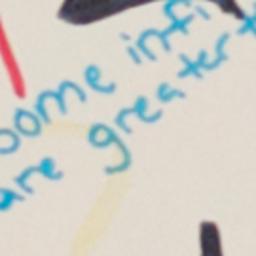 oome infi
are greater t